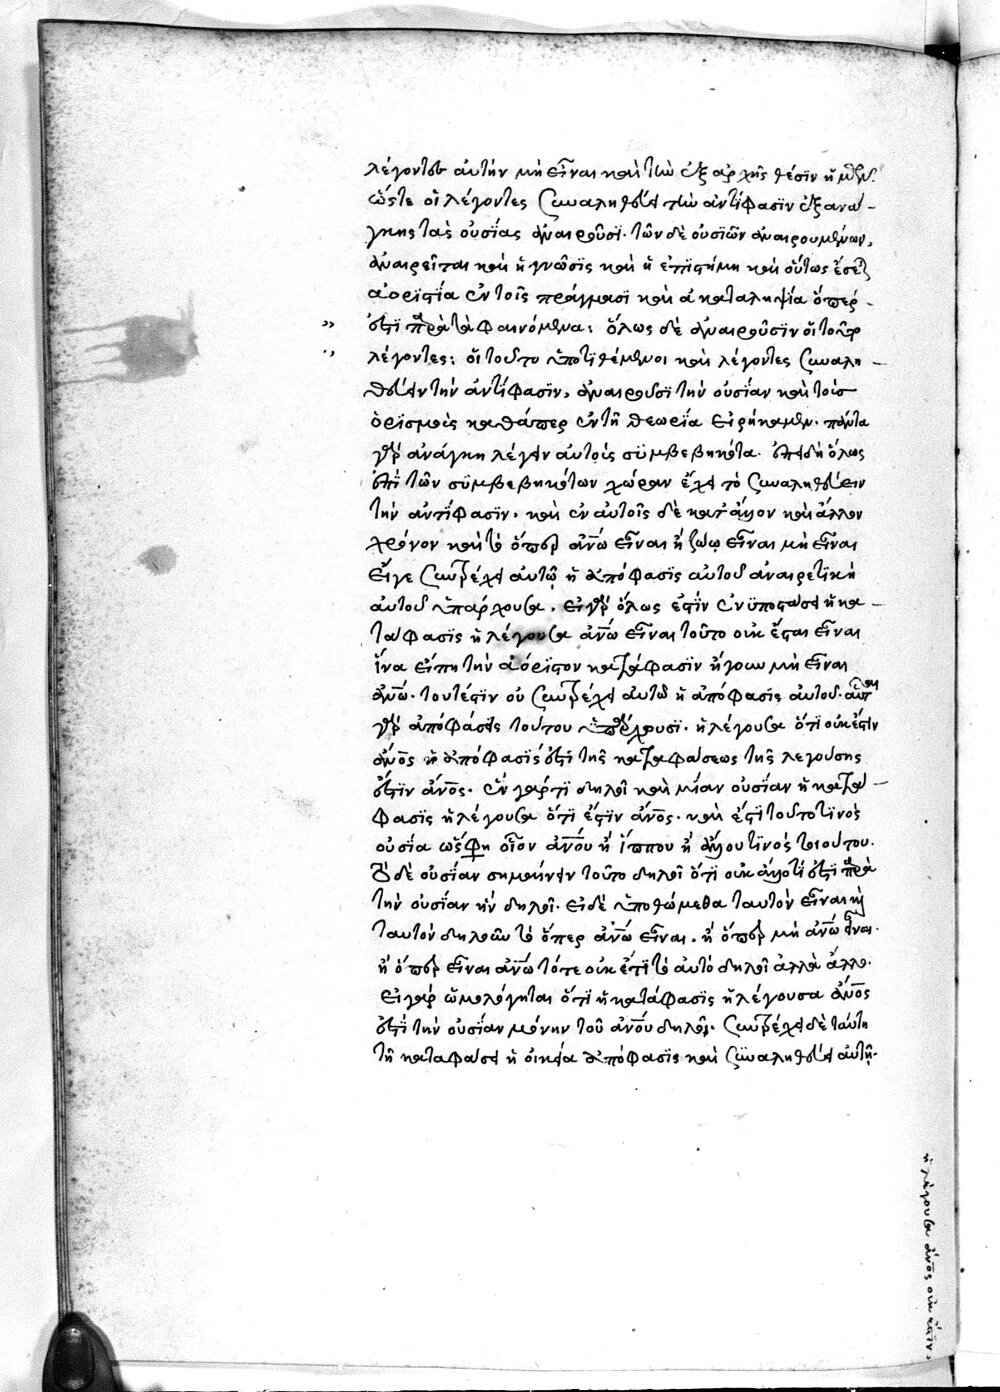 λέγοντες αὐτὴν μὴ εἶναι καὶ τὴν ἐξ ἀρχῆς θέσιν ἢ
ὥστε οἱ λέγοντες συναληθεύειν τὴν ἀντίφασιν ἐξ ἀνάγ-
κης τὰς οὐσίας ἀναιροῦσι. τῶν δὲ οὐσιῶν ἀναιρουμένων,
ἀναιρεῖται καὶ ἡ γνῶσις καὶ ἡ ἐπιστήμη καὶ οὕτως ἔσται
ἀοριστία ἐν τοῖς πράγμασι καὶ ἀκαταληψία ὅπερ
ἐστὶ παρὰ τὰ φαινόμενα: ὅλως δὲ ἀναιροῦσιν οἱ τοῦτο
λέγοντες: οἱ τοῦτο ὑποτιθέμενοι καὶ λέγοντες συναλη-
θεύειν τὴν ἀντίφασιν, ἀναιροῦσι τὴν οὐσίαν καὶ τοὺς
ὁρισμοὺς καθάπερ ἐν τῇ θεωρίᾳ εἰρήκαμεν. πάντα
γὰρ ἀνάγκη λέγειν αὐτοῖς συμβεβηκότα. ἐπειδὴ ὅλως
ἐπὶ τῶν συμβεβηκότων χώραν ἔχει τὸ συναληθεύειν
τὴν ἀντίφασιν. καὶ ἐν αὐτοῖς δὲ κατ' ἄλλον καὶ ἄλλον
χρόνον καὶ τὸ ὅπερ ἀνω εἶναι ἢ ζώῳ εἶναι μὴ εἶναι
εἴγε συντρέχει αὐτῷ ἡ ἀπόφασις αὐτοῦ ἀναιρετικὴ
αὐτοῦ ὑπάρχουσα. εἰ γὰρ ὅλως ἐστὶν ἐνυποστάσει ἡ κα-
τάφασις ἡ λέγουσα ἀνω εἶναι τοῦτο οὐκ ἔσται εἶναι
ἵνα εἴπῃ τὴν ἀόριστον κατάφασιν ἤγουν μὴ εἶναι
ἀνω. τουτέστιν οὐ συντρέχει αὐτῷ ἡ ἀπόφασις αὐτοῦ. αὗται
γὰρ ἀποφάσεις τούτου ὑπάρχουσι. ἡ λέγουσα ὅτι οὐκ ἔστιν
ἀνος ἡ ἀπόφασις ἐστὶ τῆς καταφάσεως τῆς λεγούσης
ἔστιν ἀνος. ἓν γάρ τι δηλοῖ καὶ μίαν οὐσίαν ἡ κατά-
φασις ἡ λέγουσα ὅτι ἔστιν ἀνος. καὶ ἔστι τοῦτο τινὸς
οὐσία ὡς ἔφη οἷον ἀνου ἢ ἵππου ἢ ἄλλου τινὸς τοιούτου.
τὸ δὲ οὐσίαν σημαίνειν τοῦτο δηλοῖ ὅτι οὐκ ἄλλο τί ἐστι παρὰ
τὴν οὐσίαν ἣν δηλοῖ. εἰ δὲ ὑποθώμεθα ταυτὸν εἶναι ἢ
ταυτὸν δηλοῦν τὸ ὅπερ ἀνω εἶναι. ἢ ὅπερ μὴ ἀνω εἶναι.
ἢ ὅπερ εἶναι ἀνω τότε οὐκ ἔτι τὸ αὐτὸ δηλοῖ ἀλλὰ ἄλλο.
εἰ γὰρ ὡμολόγηται ὅτι ἡ κατάφασις ἡ λέγουσα ἀνος
ἐστὶ τὴν οὐσίαν μόνην τοῦ ἀνου δηλοῖ. συντρέχει δὲ ταύτῃ
τῇ καταφάσει ἡ οἰκεία ἀπόφασις καὶ συναληθεύει αὐτῇ.
ἡ λέγουσα ἀνος οὐκ ἔστιν.